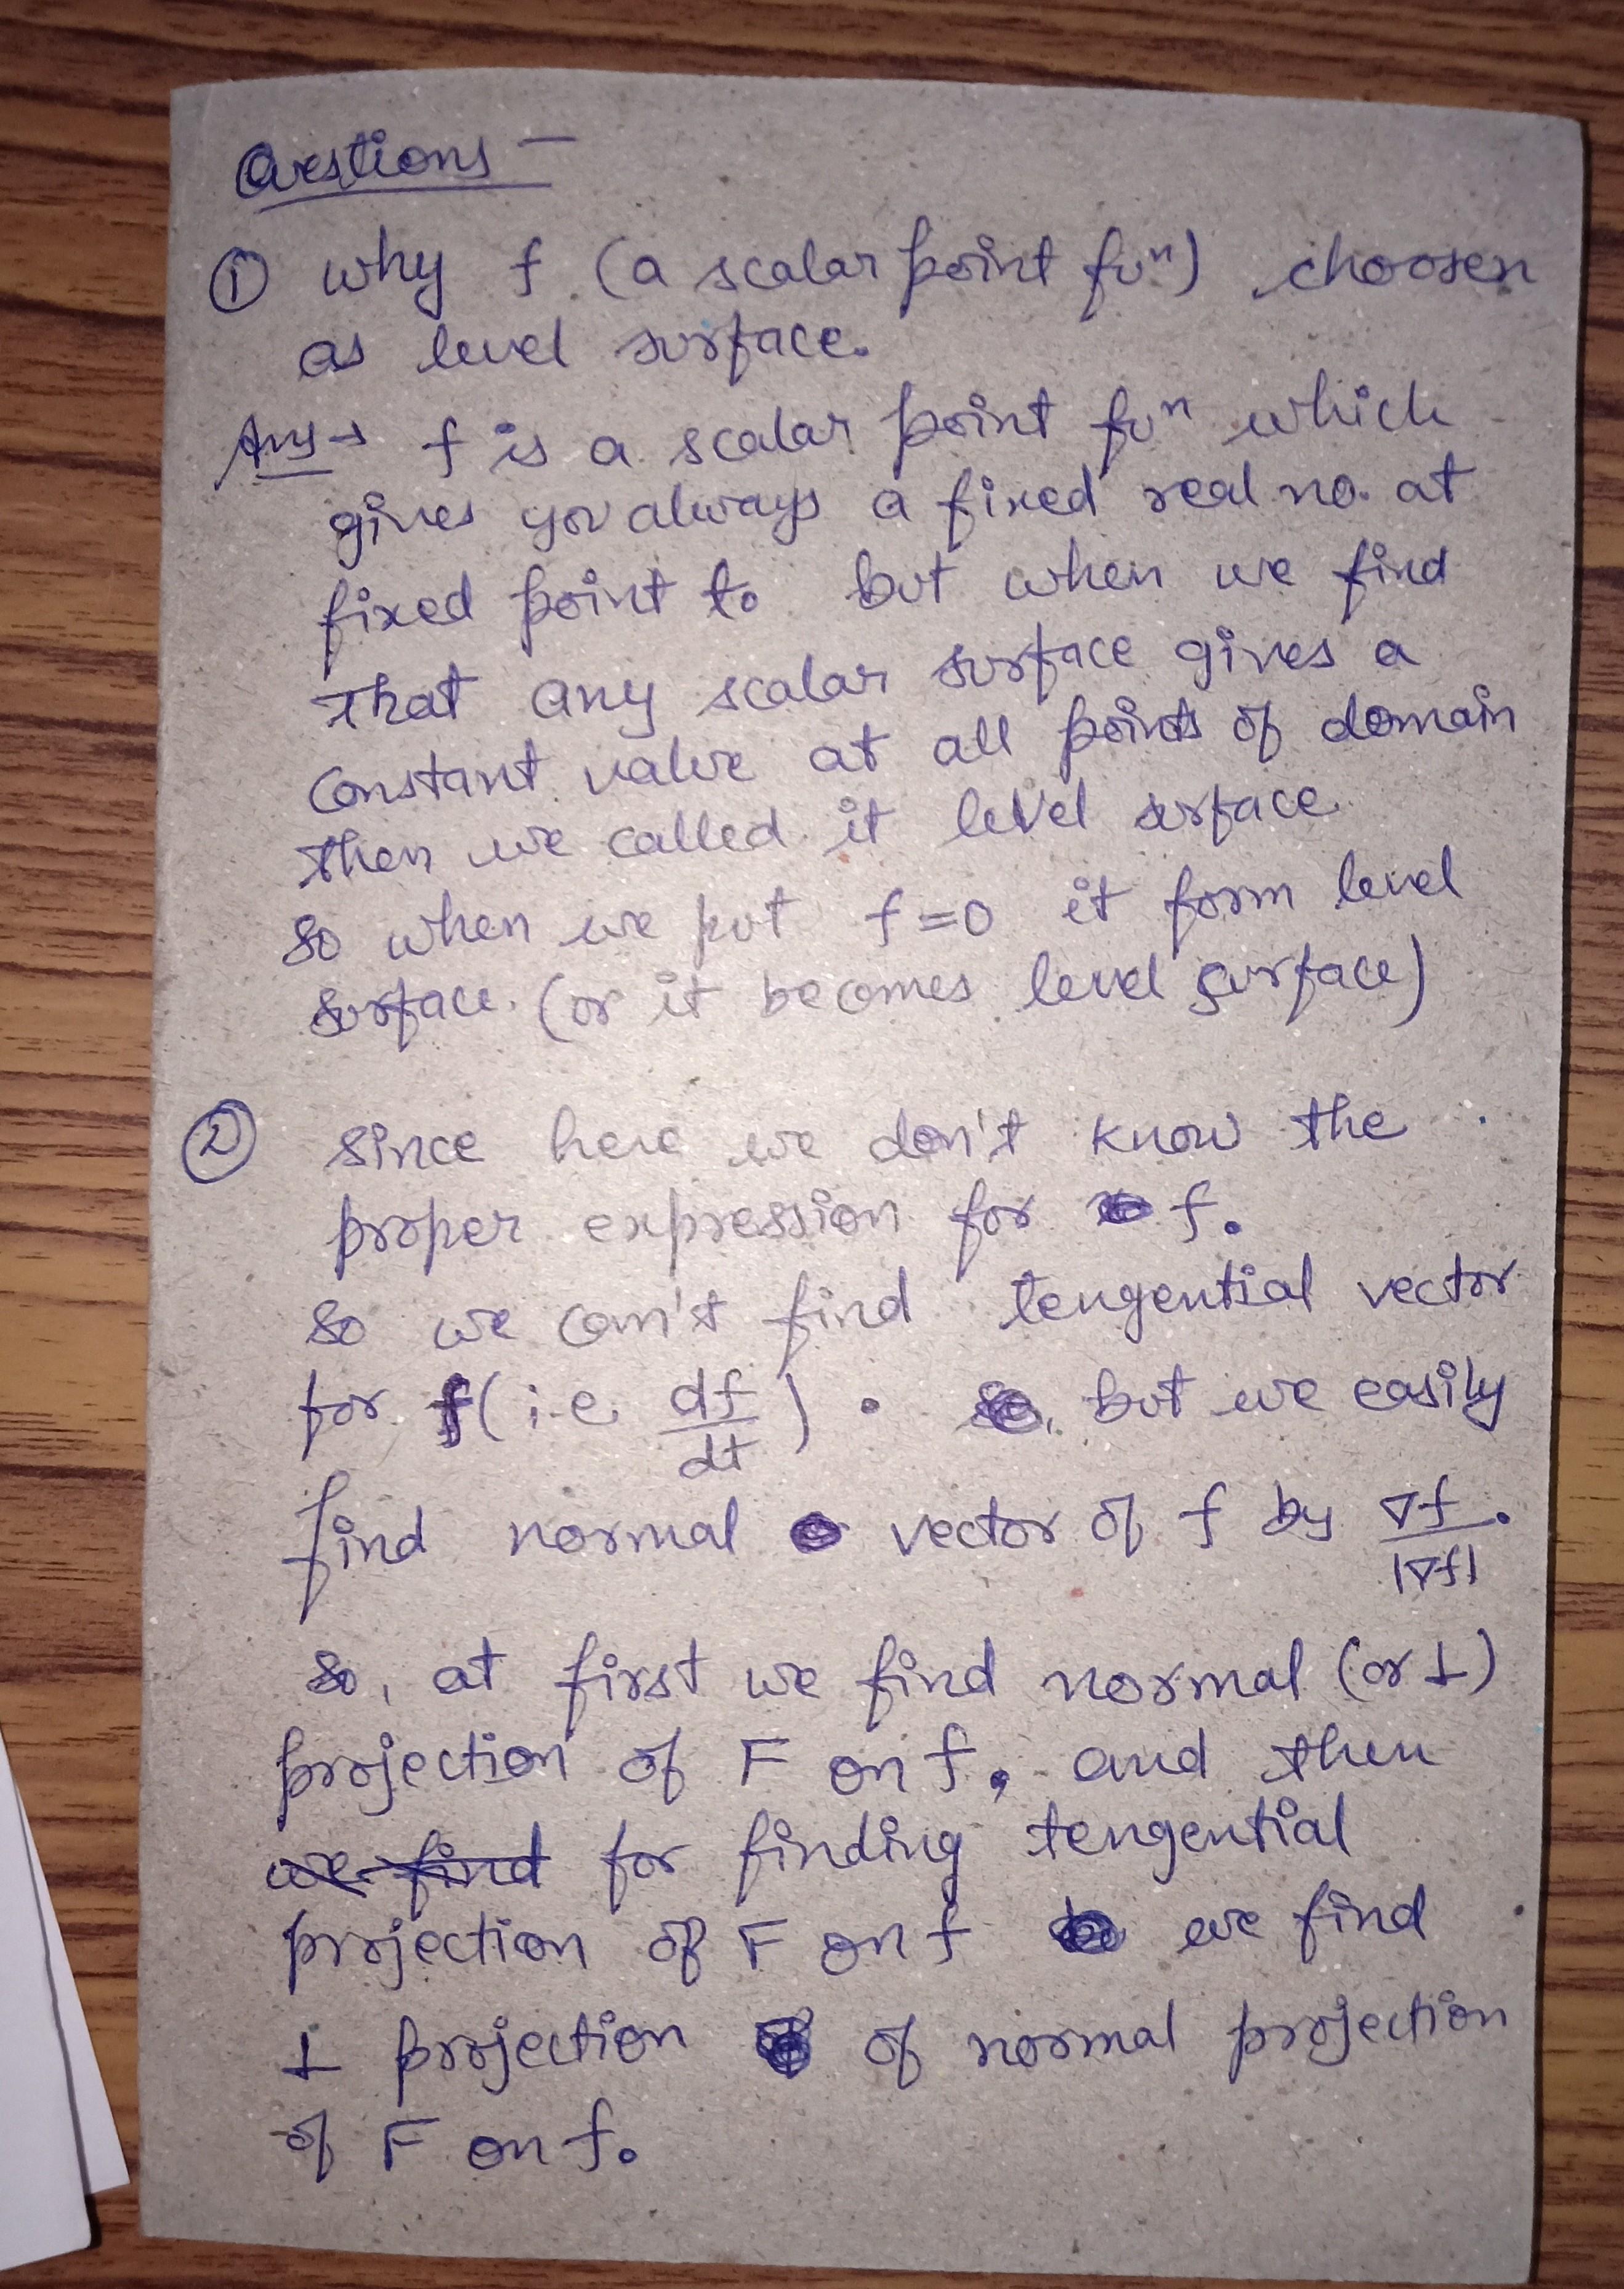 Questions —
① why f (a scalar point fuⁿ) choosen
as level surface.
Ans→ f is a scalar point fuⁿ which
gives you always a fixed real no. at
fixed point to but when we find
that any scalar surface gives a
constant value at all points of domain
then we called it level surface
so when we put f=0 it form level
surface. (or it becomes level surface)
② since here we don't know the
proper expression for f.
so we can't find tengential vector
for f (i.e. df/dt). but we easily
find normal vector of f by ∇f/|∇f|.
so, at first we find normal (or ⊥)
projection of F on f, and then
we find for finding tengential
projection of F on f we find
⊥ projection of normal projection
of F on f.